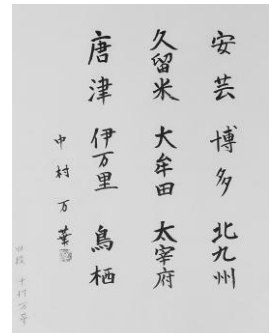 安芸 博多 北九州
久留米 大牟田 太宰府
唐津 伊万里 鳥栖
中村万葉